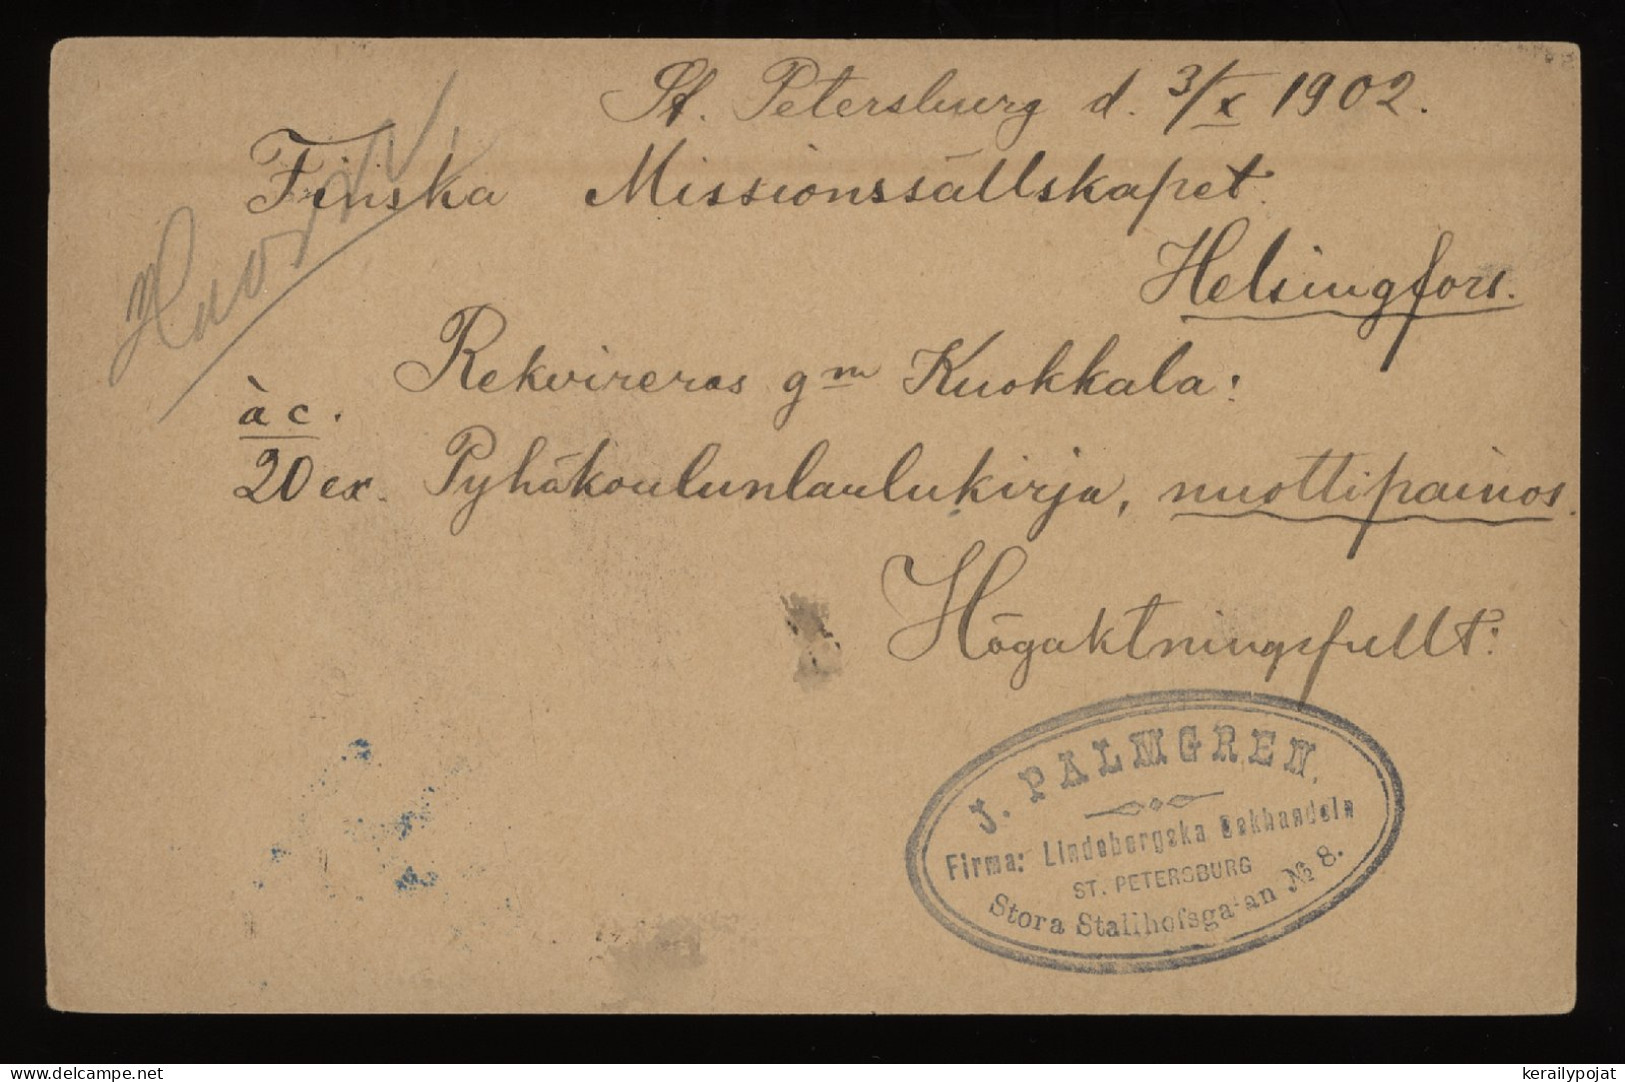 St. Petersburg d. 3/X 1902.
Finska Missionssällskapet
Helsingfors.
Rekvireras gm Kuokkala:
à c.
20 ex. Pyhäkoulunlaulukirja, nuottipainos.
Högaktningsfullt:
J. PALMGREN.
Firma: Lindebergska Bokhandeln
ST. PETERSBURG
Stora Stallhofsgatan № 8.
www.delcampe.net
kerailypojat